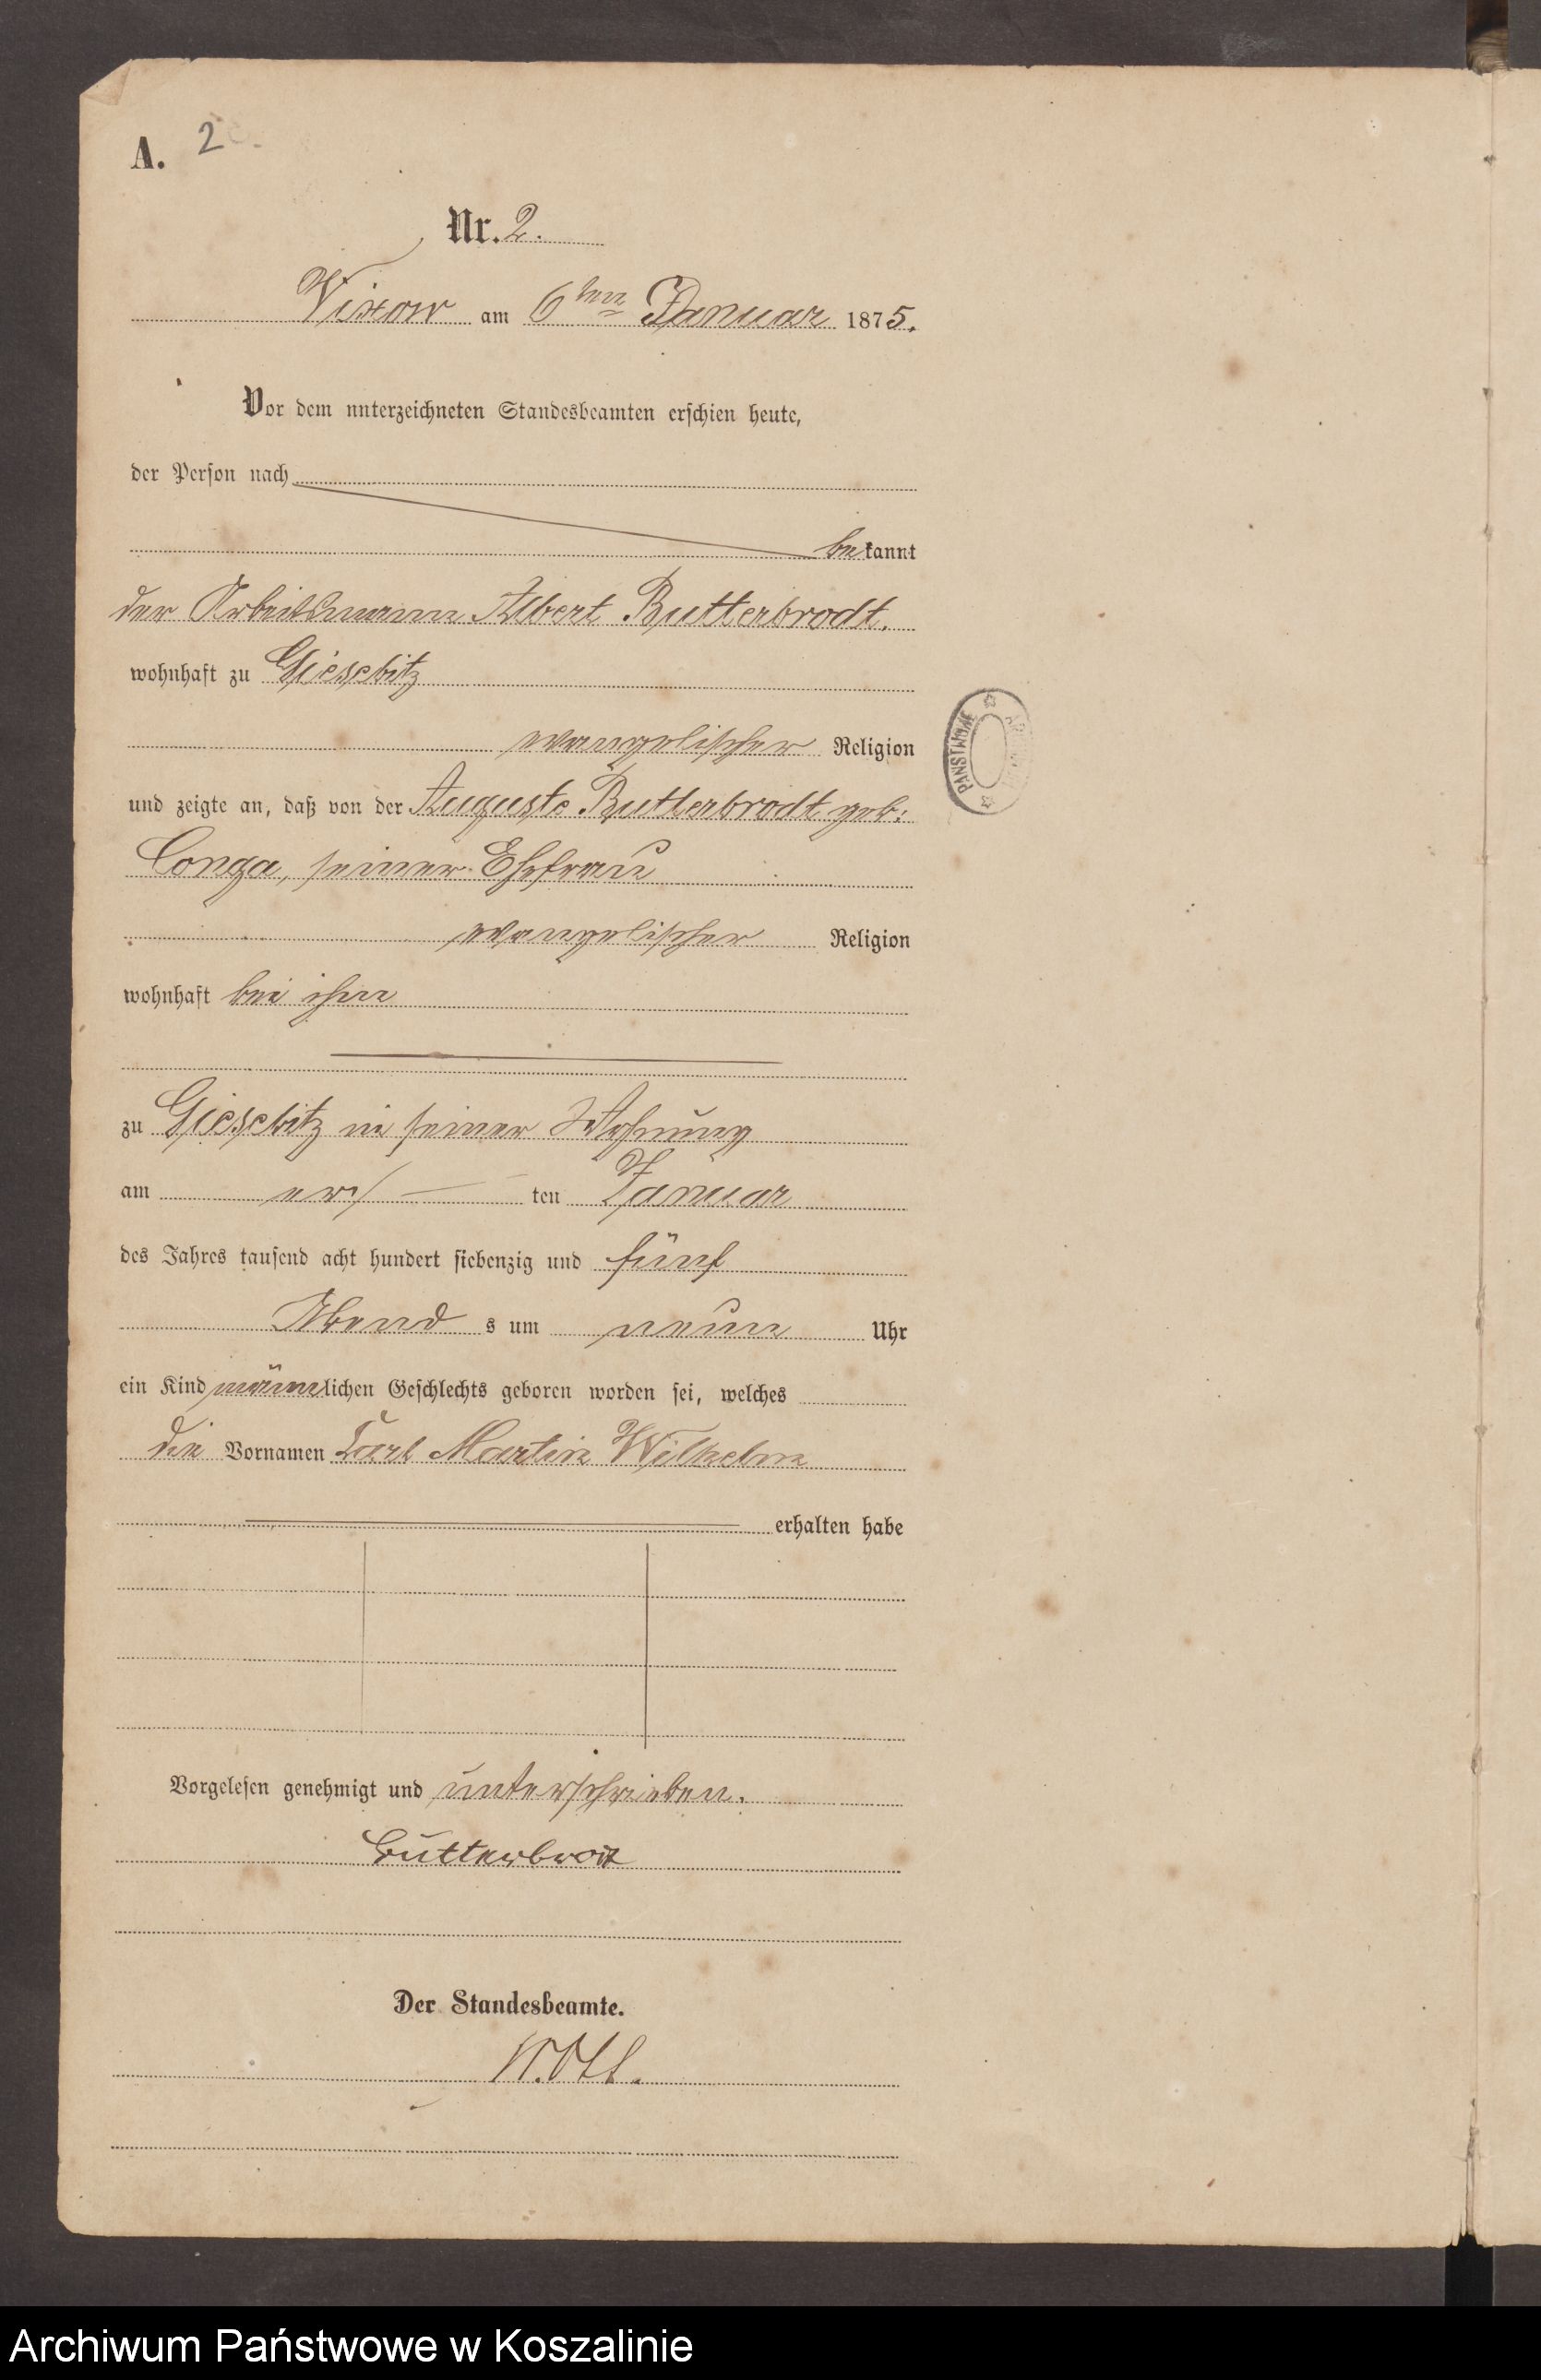 A. 2
Nr. 2.
Vixow am 6ten Januar 1875.
Vor dem unterzeichneten Standesbeamten erschien heute,
der Person nach
bekannt
der Arbeitsmann Albert Butterbrodt.
wohnhaft zu Giesebitz
evangelischer Religion
und zeigte an, daß von der Auguste Butterbrodt geb:
Conga, seiner Ehefrau
evangelischer Religion
wohnhaft bei ihm
zu Giesebitz in seiner Wohnung
am ers ten Januar
des Jahres tausend acht hundert siebenzig und fünf
Abend s um neun Uhr
ein Kind männlichen Geschlechts geboren worden sei, welches
die Vornamen Carl Martin Wilhelm
erhalten habe
Vorgelesen genehmigt und unterschrieben.
Butterbrodt
Der Standesbeamte.
PAŃSTWOWE
Archiwum Państwowe w Koszalinie